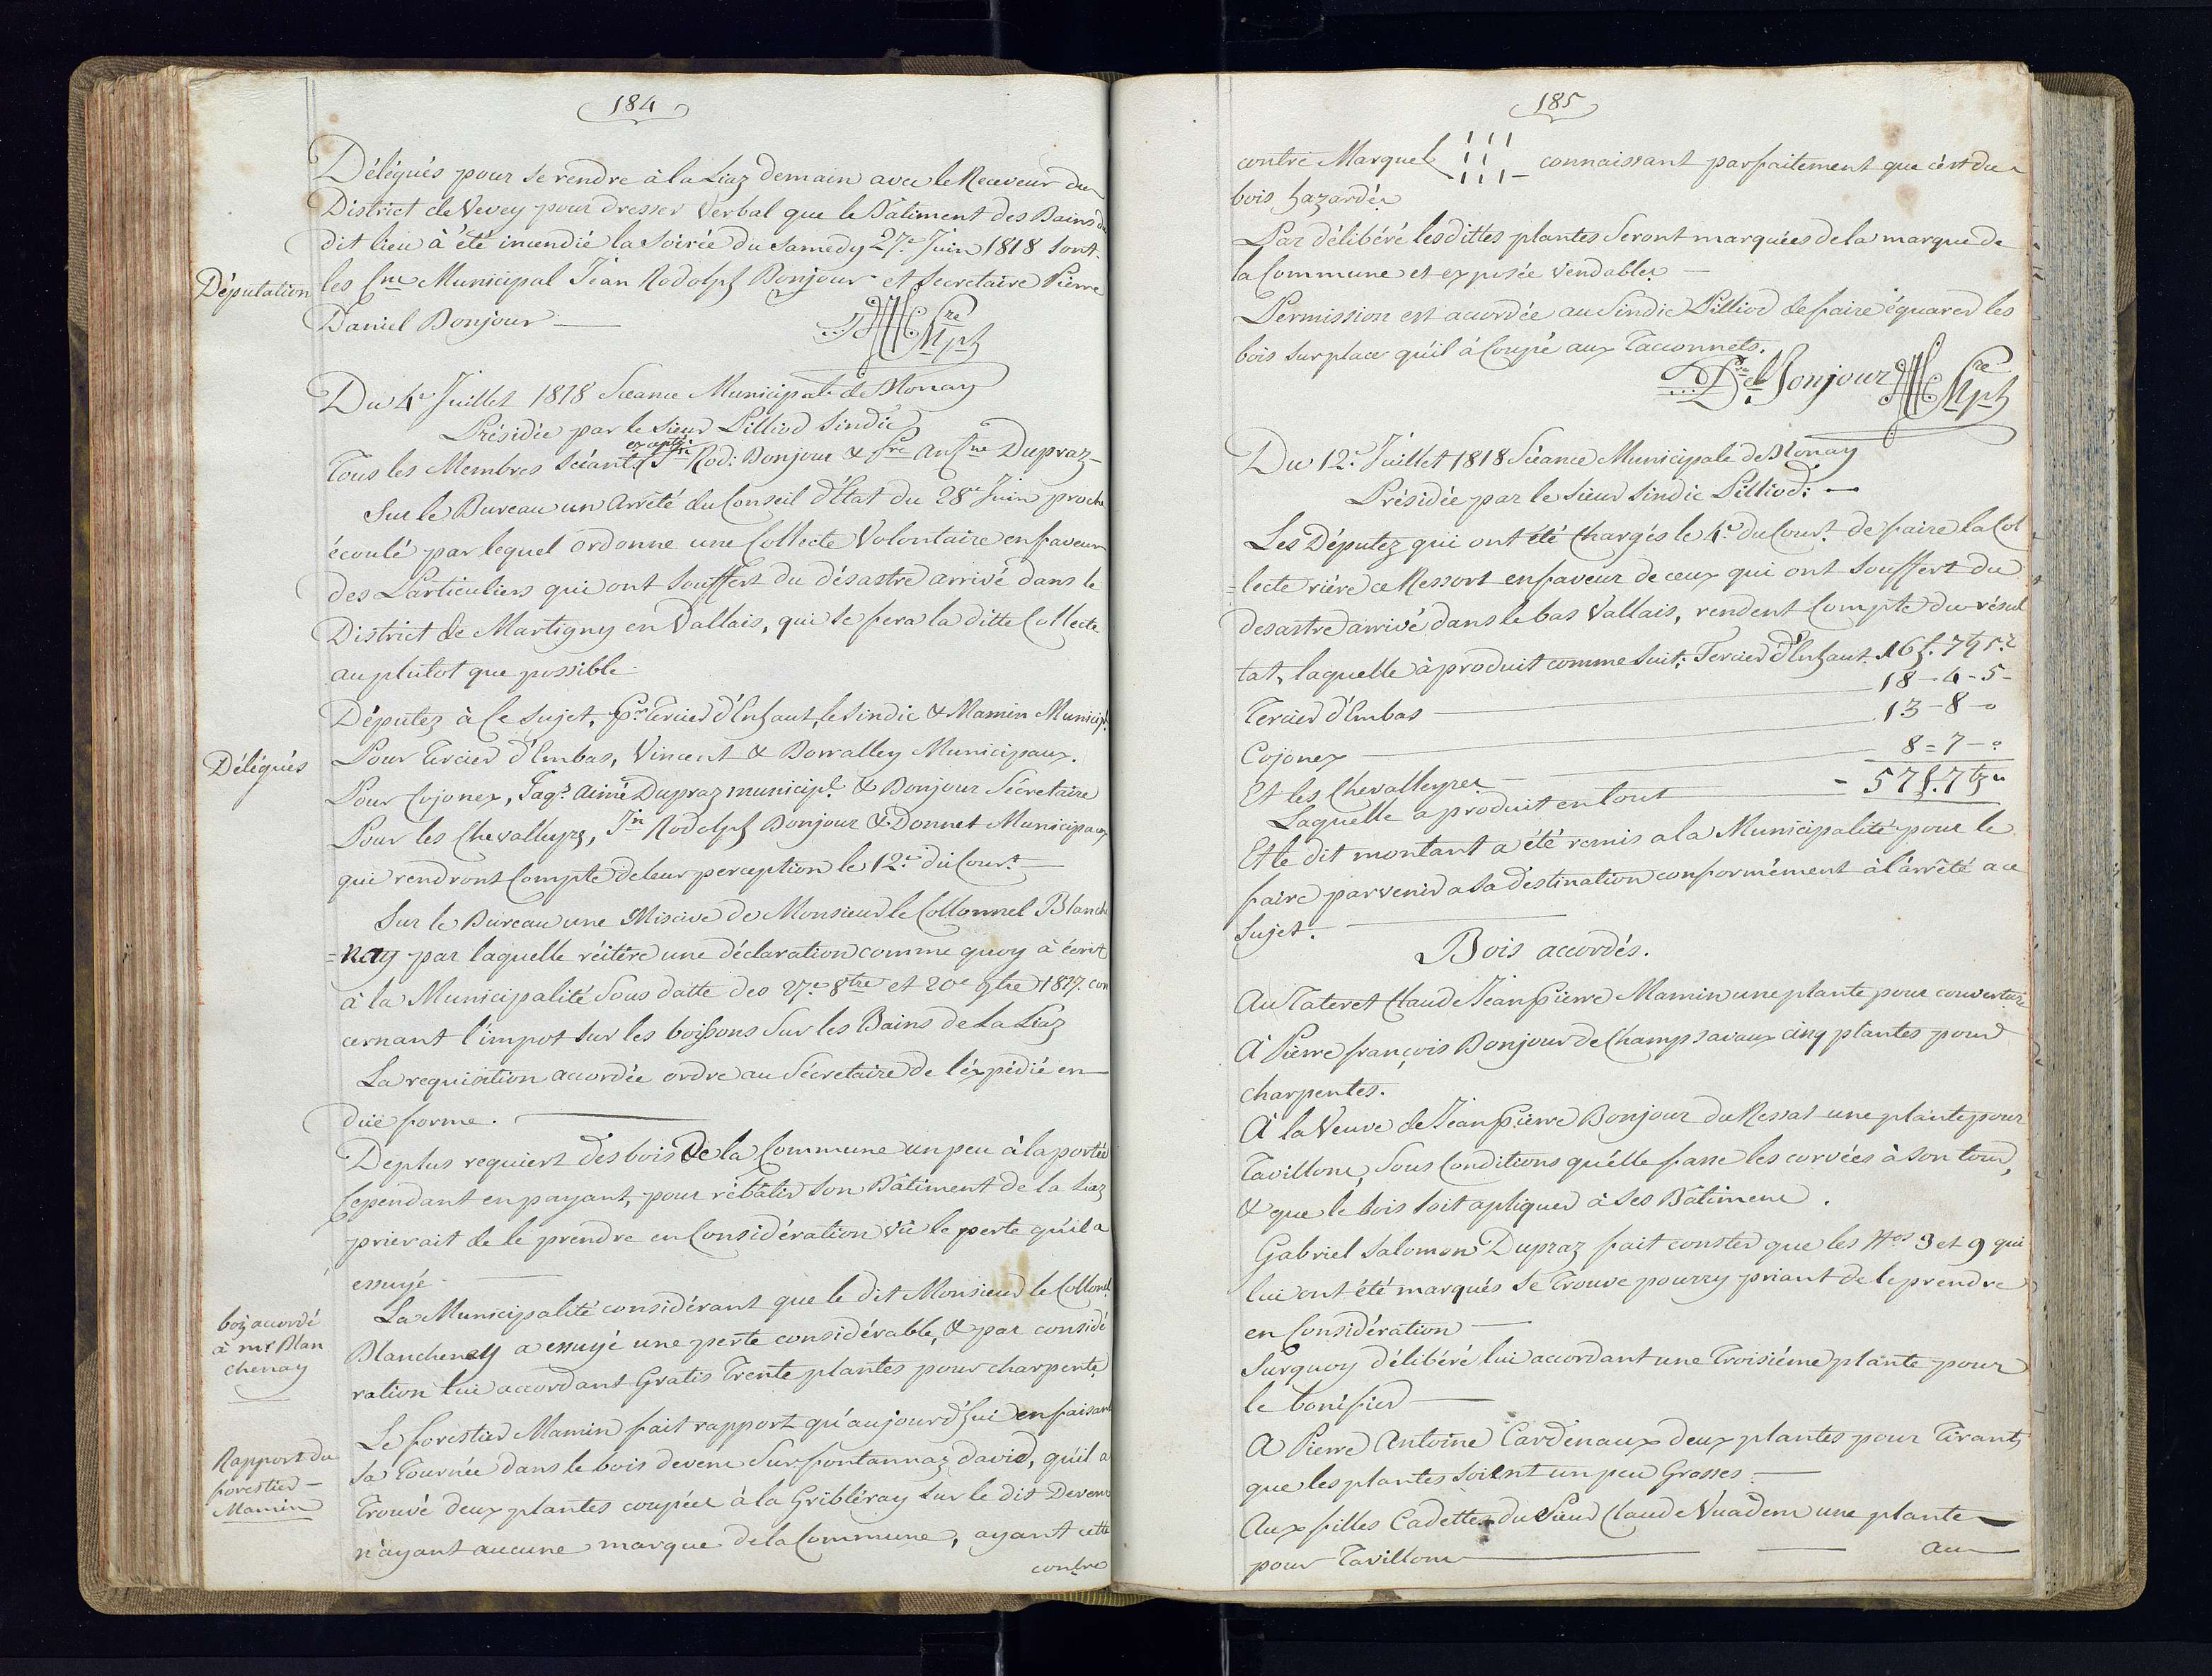 184
Délégués pour se rendre à la Liaz demain avec le Receveur du
District de Vevey pour dresser Verbal que le Bâtiment des Bains du
dit lieu à été incendié la Soirée du Samedy 27e Juin 1818 sont.
Députation
les Municipal Jean Rodolph Bonjour et Secretaire Pierre
Daniel Bonjour
Du 4e Juillet 1818 Séance Municipale de Blonay
Présidée par le Sieur Pilliod Sindic
excepté
Tous les Membres Séants Jn Rod: Bonjour & Dupraz
Sur le Bureau un Arrêté du Conseil d'Etat du 28e Juin proche
écoulé par lequel ordonne une Collecte Volontaire en faveur
des Particuliers qui ont Souffert du désastre arrivé dans le
District de Martigny en Vallais, qui se fera la ditte Collecte
au plutot que possible
Députez à Ce Sujet, Pr Tercier d'Enhaut, le Sindic & Mamin Municipx
Délégués
Pour Tercier d'Embas, Vincent & Borralley Municipaux.
Pour Cojonex, Jaqs Aimé Dupraz municipl & Bonjour Sécretaire
Pour les Chevalleyrs, Jn Rodolph Bonjour & Donnet Municipaux
qui rendront Compte de leur perception le 12e du Court
Sur le Bureau une Miscive de Monsieur le Collonnel Blanche
=nay par laquelle réitère une déclaration comme quoy à écrit
à la Municipalité Sous datte des 27e 8bre et 20e 9bre 1817. con
cernant l'impot sur les boissons Sur les Bains de La Liaz
La requisition accordée ordre au Sécretaire de l'éxpédié en
düe forme.
De plus requiert des bois de la Commune un peu à la portée
Cependant en payant, pour rébâtir Son Bâtiment de la Liaz
prierait de le prendre en Considération vû le perte qu'il a
essuyé
La Municipalité considérant que le dit Monsieur le Collonel
boiz accordé
à mr Blan
chenay
Blanchenay a essuyé une perte considérable, & par considé
ration lui accordant Gratis Trente plantes pour charpente
Le forestier Mamin fait rapport qu'aujourd'hui en faisant
Rapport du
forestier
Mamin
Sa Tournée dans le bois devens Sur fontannaz david, qu'il a
Trouvé deux plantes coupées à la Gribléray Sur le dit Devens
n'ayant aucune marque de la Commune, ayant cette
contre
185
contre Marque connaissant parfaitement que c'est du
bois hazardés
Par délibéré lesdittes plantes Seront marquées de la marque de
la Commune et exposée Vendables
Permission est accordée au Sindic Pilliod de faire équarer les
bois Sur place qu'il à Coupé aux Tacconnets.
Bonjour
Du 12e Juillet 1818 Séance Municipale de Blonay
Présidée par le Sieur Sindic Pilliod.
Les Députez qui ont été Chargés le 4e du Court de faire la Col
=lecte rière ce Ressort en faveur de ceux qui ont Souffert du
desastre arrivé dans le bas Vallais, rendent Compte du résul
tat, laquelle à produit comme Suit; Tercier d'Enhaut. 16f. 7bz 5r
Tercier d'Embas 18-4-5-
Cojonex 13-8-0
Et les Chevalleyres 8=7-0
Laquelle a produit en tout - 57f.7bz
Et le dit montant a été remis a la Municipalité pour le
faire parvenir a Sa destination conformément à l'arrêté a ce
Sujet.
Bois accordés.
Au Tateret Claude Jean Pierre Mamin une plante pour couverture
A Pierre françois Bonjour de Champsavaux cinq plantes pour
charpentes.
A la Veuve de Jean Pierre Bonjour du Ressat une plante pour
Tavillons, Sous Conditions qu'elle fasse les corvées à Son tour,
& que le bois Soit apliquer à Ses Bâtimens.
Gabriel Salomon Dupraz fait conster que les Nos 3 et 9 qui
lui ont été marqués Se Trouve pourry priant de le prendre
en Considération
Surquoy délibéré lui accordant une Troisiéme plante pour
le bonifier
A Pierre Antoine Cardinaux deux plantes pour Tirants
que les plantes Soient un peu Grosses
Aux filles Cadettes du Sieur Claude Vuadens une plante
pour Tavillons
au